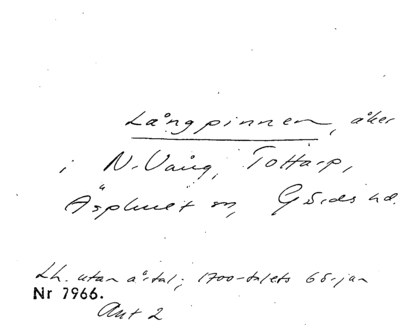 Långpinnen, åker
i N. Vång, Tottarp,
Äsphult sn, Gärds hd.
Lh. utan årtal; 1700-talets början
Nr 7966.
Akt 2